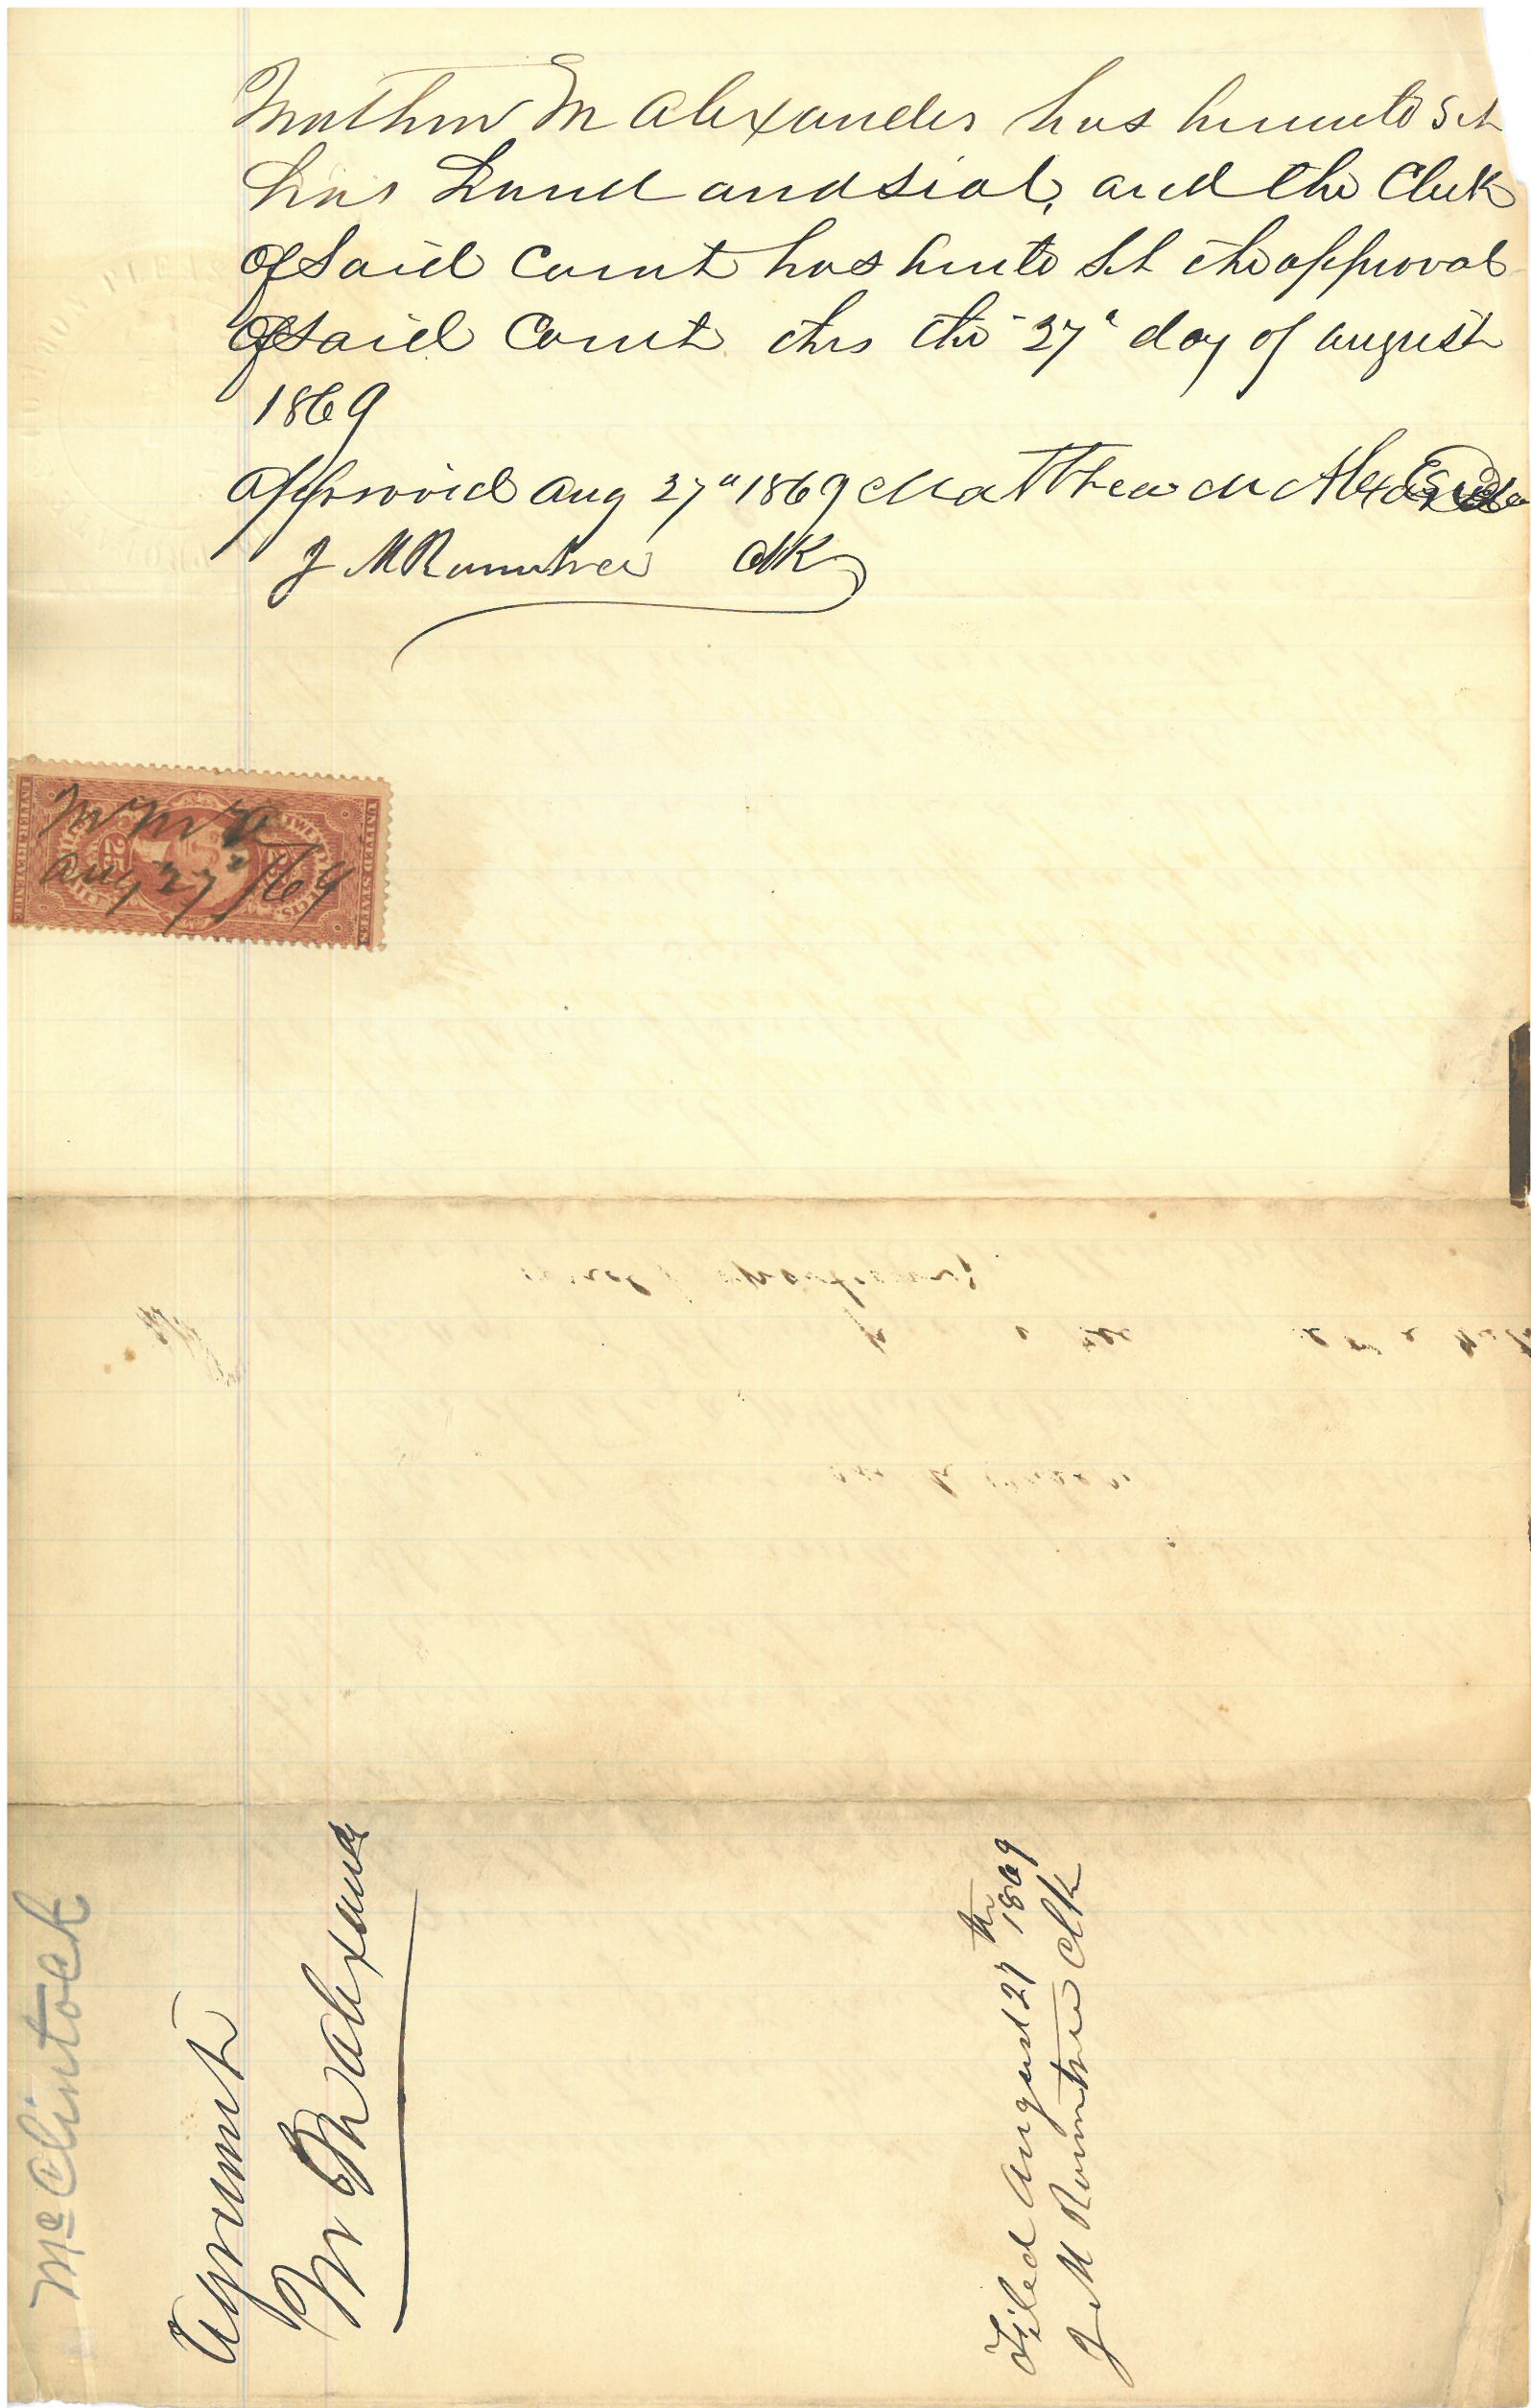 Mathew M Alexander has hereunto set
his hand and seal, and the Clerk
of said Court has hereunto set the approval
of said Court this the 27" day of august
1869
approved aug 27" 1869 Matthew M Alexander
J M Rountree Clk
M M A
aug 27" /69
UNITED STATES
25
McClintock
Agreement
M M Alexander
Filed August 27th 1869
J M Rountree Clk